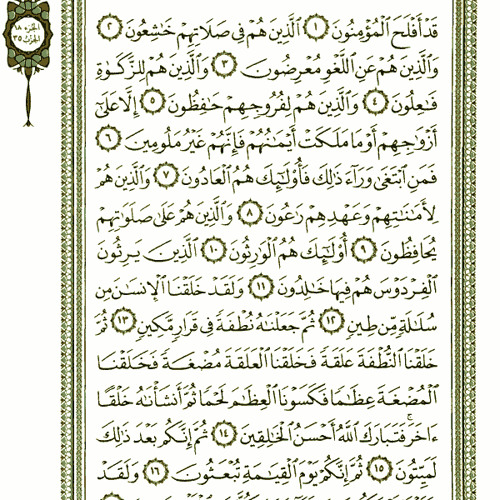 الجزء ١٨
الحزب ٣٥
قَدْ أَفْلَحَ ٱلْمُؤْمِنُونَ ١ ٱلَّذِينَ هُمْ فِى صَلَاتِهِمْ خَٰشِعُونَ ٢
وَٱلَّذِينَ هُمْ عَنِ ٱللَّغْوِ مُعْرِضُونَ ٣ وَٱلَّذِينَ هُمْ لِلزَّكَوٰةِ
فَٰعِلُونَ ٤ وَٱلَّذِينَ هُمْ لِفُرُوجِهِمْ حَٰفِظُونَ ٥ إِلَّا عَلَىٰٓ
أَزْوَٰجِهِمْ أَوْ مَا مَلَكَتْ أَيْمَٰنُهُمْ فَإِنَّهُمْ غَيْرُ مَلُومِينَ ٦
فَمَنِ ٱبْتَغَىٰ وَرَآءَ ذَٰلِكَ فَأُو۟لَٰٓئِكَ هُمُ ٱلْعَادُونَ ٧ وَٱلَّذِينَ هُمْ
لِأَمَٰنَٰتِهِمْ وَعَهْدِهِمْ رَٰعُونَ ٨ وَٱلَّذِينَ هُمْ عَلَىٰ صَلَوَٰتِهِمْ
يُحَافِظُونَ ٩ أُو۟لَٰٓئِكَ هُمُ ٱلْوَٰرِثُونَ ١٠ ٱلَّذِينَ يَرِثُونَ
ٱلْفِرْدَوْسَ هُمْ فِيهَا خَٰلِدُونَ ١١ وَلَقَدْ خَلَقْنَا ٱلْإِنسَٰنَ مِن
سُلَٰلَةٍ مِّن طِينٍ ١٢ ثُمَّ جَعَلْنَٰهُ نُطْفَةً فِى قَرَارٍ مَّكِينٍ ١٣ ثُمَّ
خَلَقْنَا ٱلنُّطْفَةَ عَلَقَةً فَخَلَقْنَا ٱلْعَلَقَةَ مُضْغَةً فَخَلَقْنَا
ٱلْمُضْغَةَ عِظَٰمًا فَكَسَوْنَا ٱلْعِظَٰمَ لَحْمًا ثُمَّ أَنشَأْنَٰهُ خَلْقًا
ءَاخَرَ ۚ فَتَبَارَكَ ٱللَّهُ أَحْسَنُ ٱلْخَٰلِقِينَ ١٤ ثُمَّ إِنَّكُم بَعْدَ ذَٰلِكَ
لَمَيِّتُونَ ١٥ ثُمَّ إِنَّكُمْ يَوْمَ ٱلْقِيَٰمَةِ تُبْعَثُونَ ١٦ وَلَقَدْ